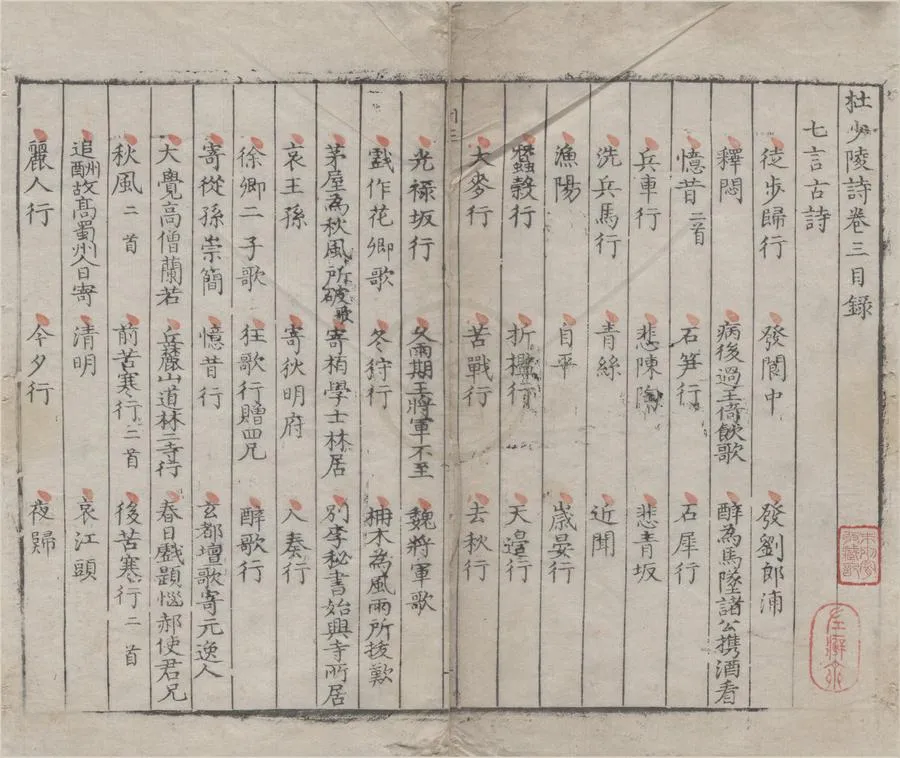 杜少陵詩卷三目錄
七言古詩
徒步歸行 發閬中 發劉郎浦
釋悶 病後過王倚飲歌 醉為馬墜諸公携酒看
憶昔二首 石笋行 石犀行
兵車行 悲陳陶 悲青坂
洗兵馬行 青絲 近聞
漁陽 自平 歲晏行
蠶穀行 折檻行 天邊行
大麥行 苦戰行 去秋行
光祿坂行 久雨期王將軍不至 魏將軍歌
戲作花卿歌 冬狩行 柟木為風雨所拔歎
茅屋為秋風所破歌 寄栢學士林居 別李秘書始興寺所居
哀王孫 寄狄明府 入奏行
徐卿二子歌 狂歌行贈四兄 醉歌行
寄從孫崇簡 憶昔行 玄都壇歌寄元逸人
大覺高僧蘭若 岳麓山道林二寺行 春日戲題惱郝使君兄
秋風二首 前苦寒行二首 後苦寒行二首
追酬故高蜀州人日寄 清明 哀江頭
麗人行 今夕行 夜歸